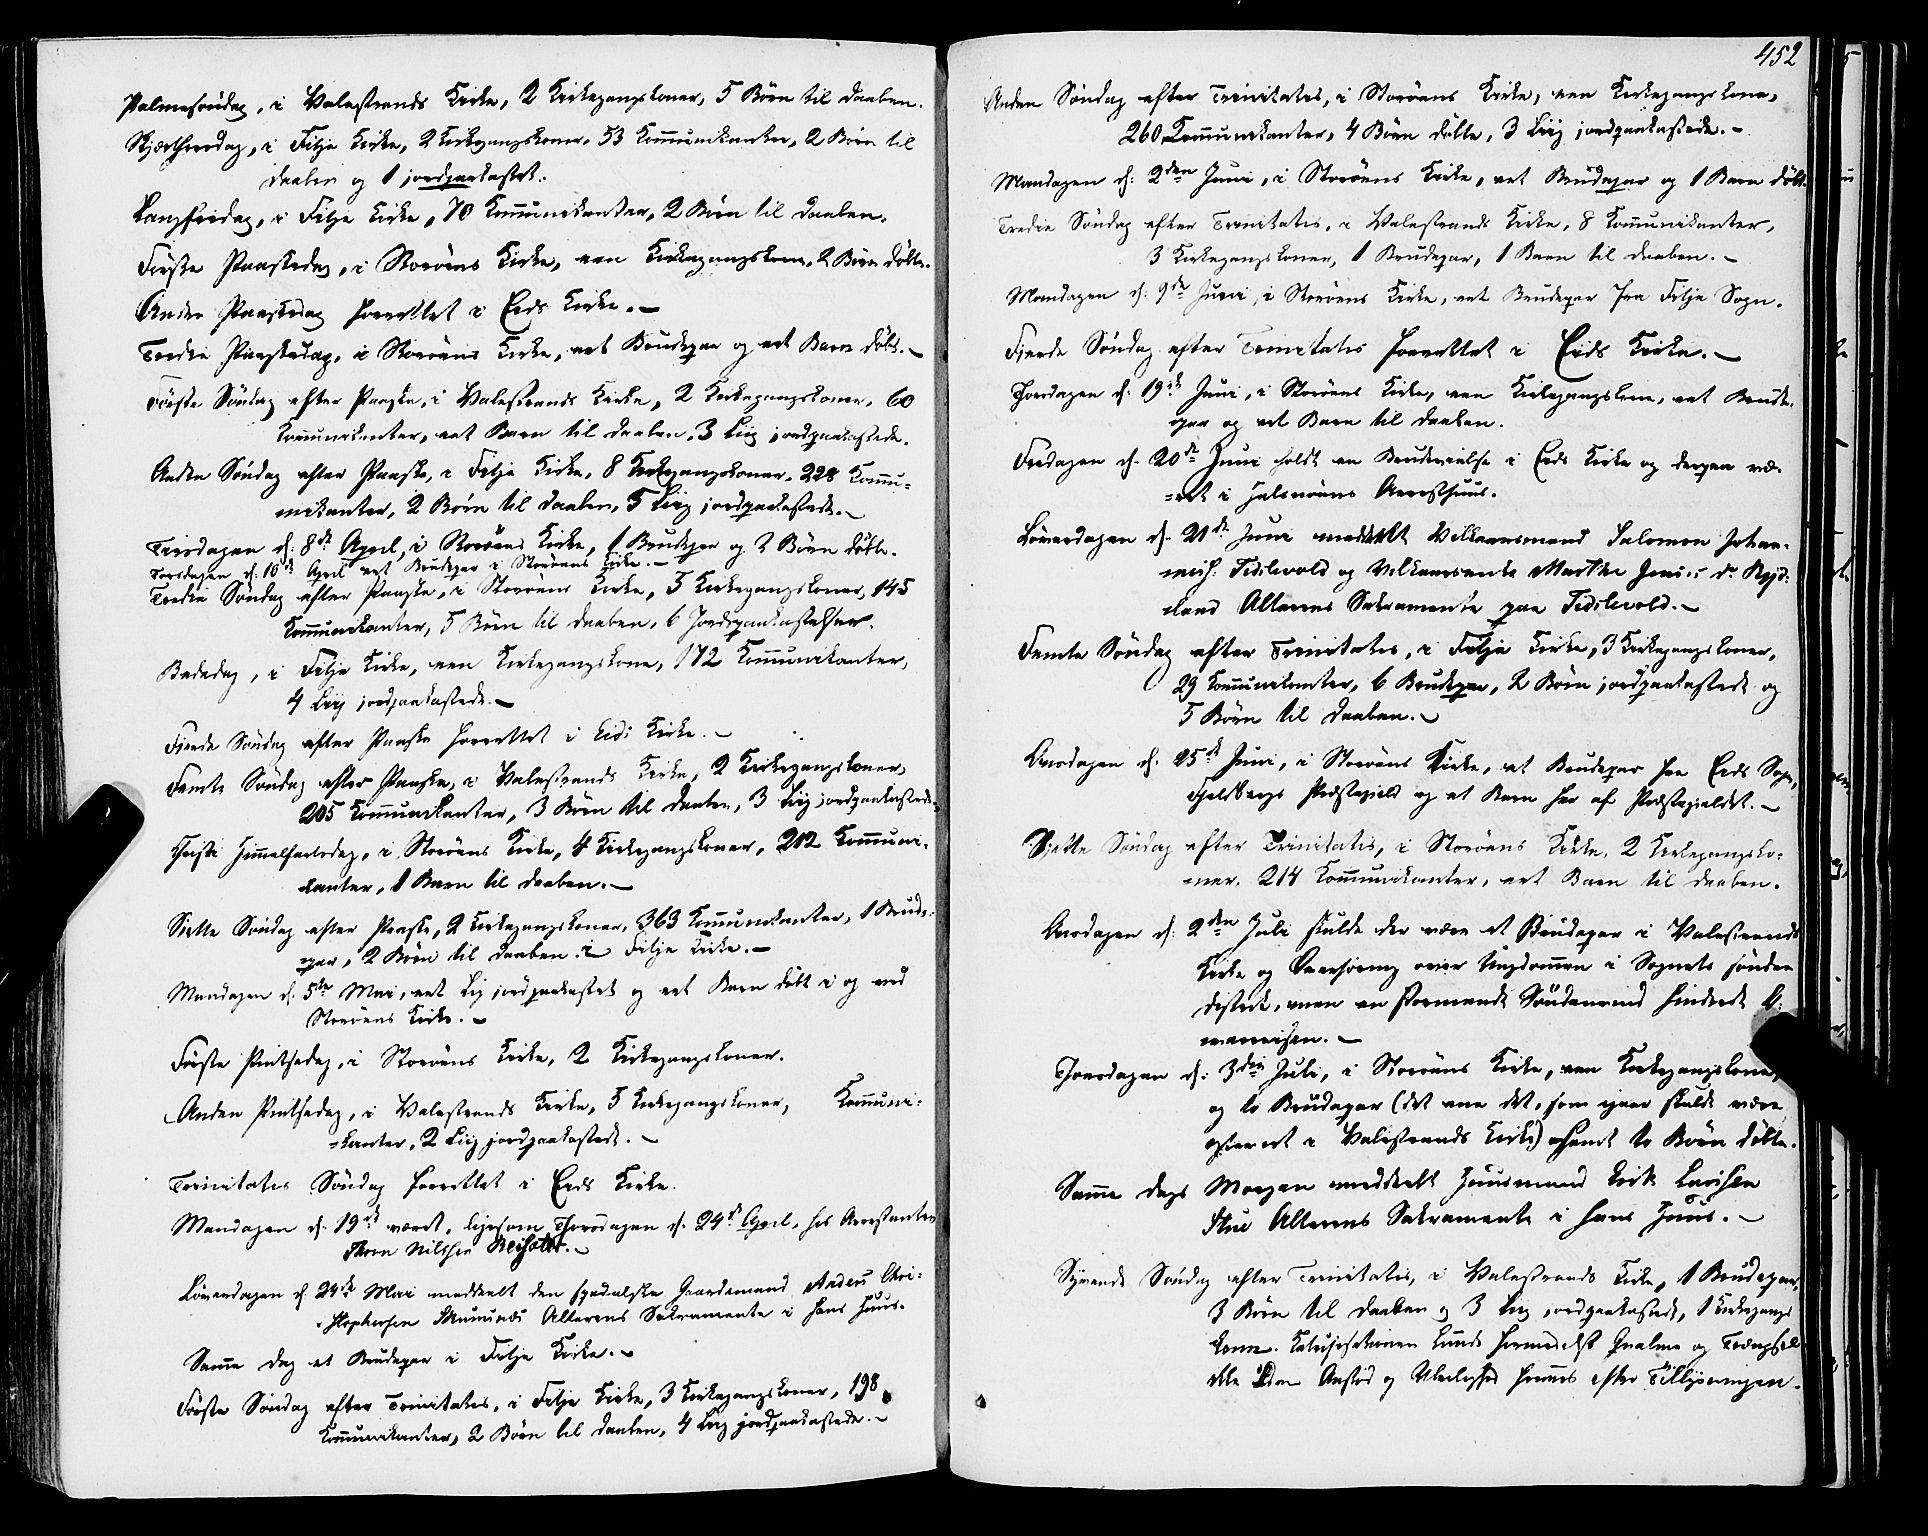 Palmesøndag, i Valestrands Kirke, 2 Kirkegangskoner, 5 Børn til Daaben.
Skjærthorsdag, i Fitje Kirke, 2 Kirkegangskoner, 53 Kommunikanter, 2 Børn til
Daaben og 1 jordpaakastet.
Langfredag, i Fitje Kirke, 70 Kommunikanter, 2 Børn til Daaben.
Første Paaskedag, i Storøens Kirke, een Kirkegangskone, 2 Børn døbte.
Anden Paaskedag forrettet i Eids Kirke.
Tredie Paaskedag, i Storøens Kirke, eet Brudepar og eet Barn døbt.
Første Søndag efter Paaske, i Valestrands Kirke, 2 Kirkegangskoner, 60
Kommunikanter, eet Barn til Daaben, 3 Liig jordpaakastede.
Anden Søndag efter Paaske, i Fitje Kirke, 8 Kirkegangskoner, 228 Kommu-
nikanter, 2 Børn til Daaben, 5 Liig jordpaakastede.
Tirsdagen d: 8de April, i Storøens Kirke, 1 Brudepar og 2 Børn døbte.
Torsdagen d. 10de April eet Brudepar i Storøens Kirke.
Tredie Søndag efter Paaske, i Storøens Kirke, 5 Kirkegangskoner, 145
Kommunikanter, 5 Børn til Daaben, 6 Jordpaakastelser.
Bededag, i Fitje Kirke, een Kirkegangskone, 172 Kommunikanter,
4 Liig jordpaakastede.
Fjerde Søndag efter Paaske forrettet i Eids Kirke.
Femte Søndag efter Paaske, i Valestrands Kirke, 2 Kirkegangskoner,
205 Kommunikanter, 3 Børn til Daaben, 3 Liig jordpaakastede.
Christi Himmelfartsdag, i Storøens Kirke, 4 Kirkegangskoner, 212 Kommuni-
kanter, 1 Barn til Daaben.
Siette Søndag efter Paaske, 2 Kirkegangskoner, 363 Kommunikanter, 1 Brude-
par, 2 Børn til Daaben i Fitje Kirke.
Mandagen d. 5te Mai, eet Lig jordpaakastet og eet Barn døbt i og ved
Storøens Kirke.
Første Pintsedag, i Storøens Kirke, 2 Kirkegangskoner.
Anden Pintsedag, i Valestrands Kirke, 5 Kirkegangskoner, Kommuni-
kanter, 2 Liig jordpaakastede.
Trinitatis Søndag forrettet i Eids Kirke.
Mandagen d. 19de været, ligesom Thorsdagen d. 24de April, hos Arrestanten
Thron Nilssen
Løverdagen d 24de Mai meddeelt den spedalske Gaardmand Anders Chri-
stophersen Alterens Sakramente i hans Huus.
Samme Dag et Brudepar i Fitje Kirke.
Første Søndag efter Trinitatis, i Fitje Kirke, 3 Kirkegangskoner, 198
Kommunikanter, 2 Børn til Daaben, 4 Liig jordpaakastede.
452
Anden Søndag efter Trinitatis, i Storøens Kirke, een Kirkegangskone,
260 Kommunikanter, 4 Børn døbte, 3 Liig jordpaakastede.
Mandagen d: 2den Juni, i Storøens Kirke, eet Brudepar og 1 Barn døbt.
Tredie Søndag efter Trinitatis, i Valestrands Kirke, 8 Kommunikanter,
3 Kirkegangskoner, 1 Brudepar, 1 Barn til Daaben.
Mandagen d: 9de Juni, i Storøens Kirke, eet Brudepar fra Fitje Sogn.
Fjerde Søndag efter Trinitatis forrettet i Eids Kirke.
Thorsdagen d: 19de Juni, i Storøens Kirke, een Kirkegangskone, eet Brude-
par og eet Barn til Daaben.
Fredagen d. 20de Juni holdt en Brudevielse i Eids Kirke og derpaa væ-
ret i Halsnøens Arresthuus.
Løverdagen d. 21de Juni meddeelt Vilkaarsmand Salomon Johan-
nes: og Vilkaarsenke Marthe
land Alterens Sakramente paa
Femte Søndag efter Trinitatis, i Fitje Kirke, 3 Kirkegangskoner,
29 Kommunikanter, 6 Brudepar, 2 Børn jordpaakastede og
5 Børn til Daaben.
Onsdagen d. 25de Juni, i Storøens Kirke, et Brudepar fra Eids Sogn,
Fjelbergs Præstegjeld og et Barn her af Præstegjeldet.
Sjette Søndag efter Trinitatis, i Storøens Kirke, 2 Kirkegangsko-
ner, 214 Kommunikanter, eet Barn til Daaben.
Onsdagen d: 2den Juli skulde der være et Brudepar i Valestrands
Kirke og Overhøring over Ungdommen i Sognets søndre
Distrikt, men en stormende Søndenvind hindrede

Thorsdagen d: 3die Juli, i Storøens Kirke, een Kirkegangskone,
og to Brudepar (det ene det, som igaar skulde være
i Valestrands Kirke) samt to Børn døbte.
Samme Dags Morgen meddeelt Huusmand Erik Larssen
Alterens Sakramente i hans Huus.
Syvende Søndag efter Trinitatis, i Valestrands Kirke, 1 Brudepar,
3 Børn til Daaben og 3 Lig jordpaakastede, 1 Kirkegangs-
kone. Katechisationen Qvalme og
ikke uden Anstød og efter Tillysningen.